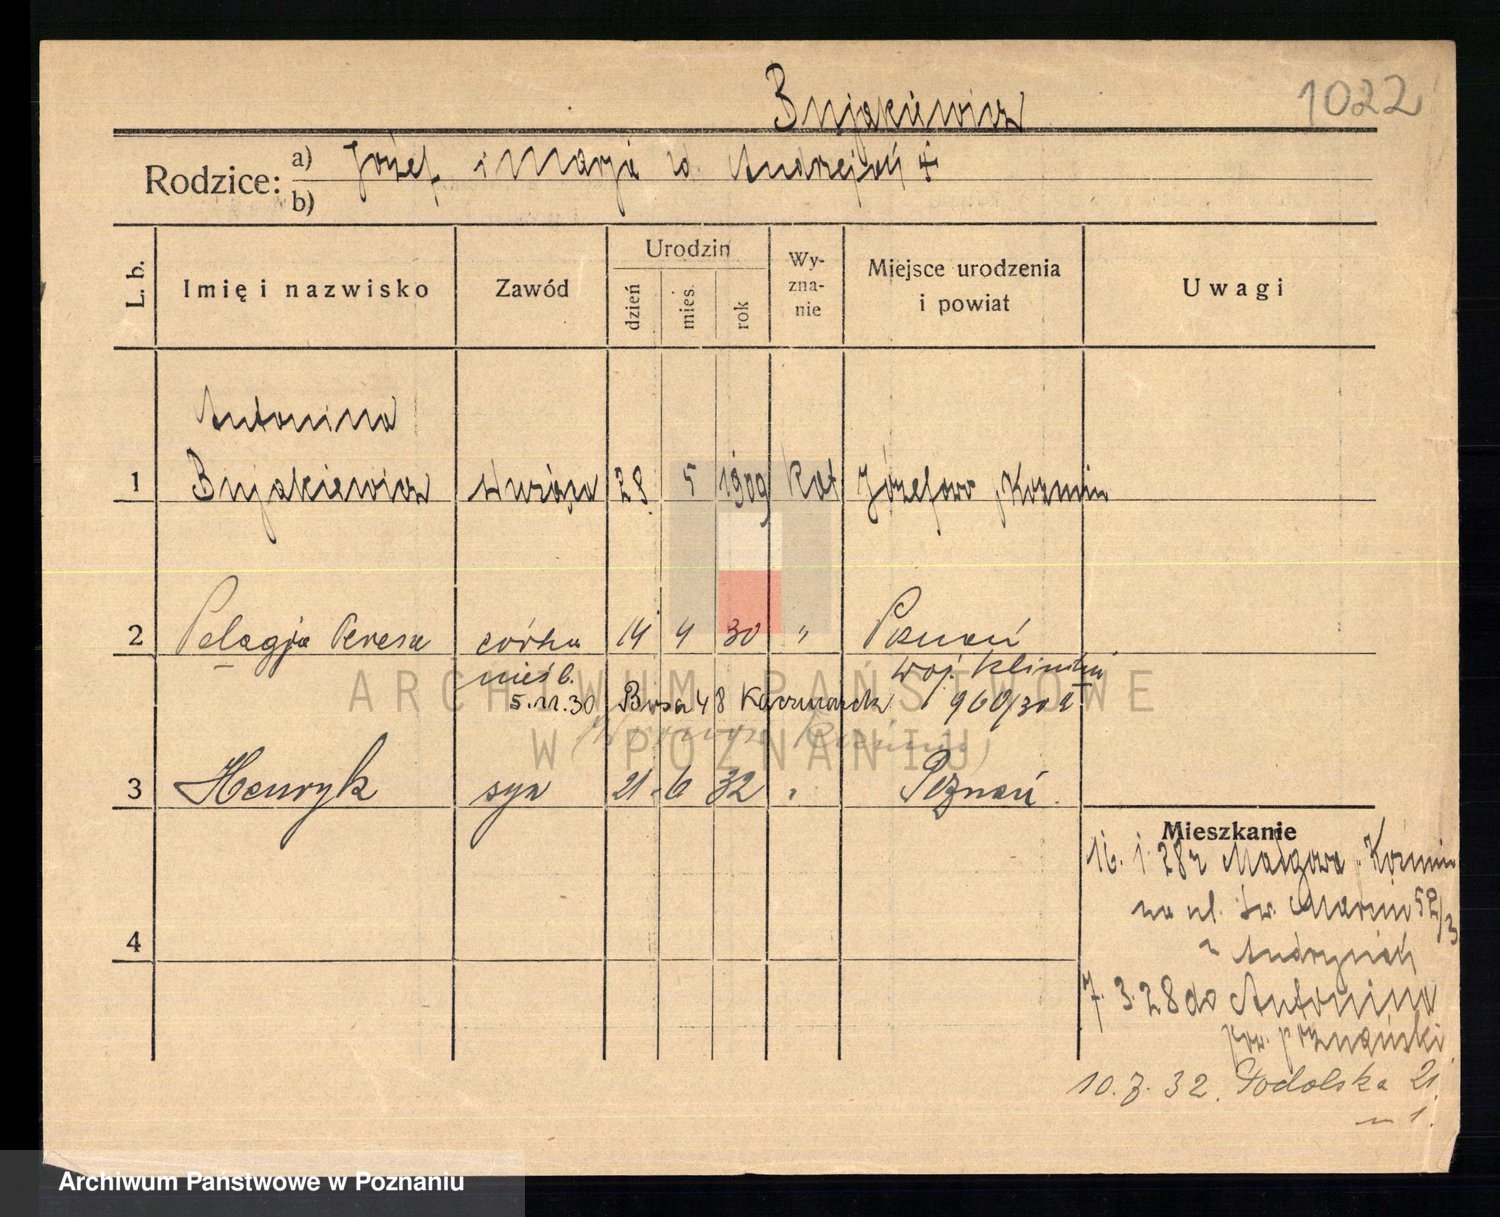 Bujakiewicz
1022
Rodzice:
a) Józef i Marja zd. Andrzejak
b)
L. b.
Imię i nazwisko
Zawód
Urodzin
dzień
mies.
rok
Wy-
zna-
nie
Miejsce urodzenia
i powiat
Uwagi
Antonina
1 Bujakiewicz służąca 28 5 1909 kat Józefowo, Koźmin
2 Pelagja Teresa córka 14 4 30 " Poznań
nieśl. woj. klin
5.11.30 Bosa 48 Kaczmarek 960/30
3 Henryk syn 21 6 32 " Poznań
4
Mieszkanie
16. 1 28r Małgowa, Koźmin
na ul. św. Marcin 52/3
7. 3. 28 do Antonina
pow. poznański
10. 7. 32. Podolska 21
m 1.
ARCHIWUM PAŃSTWOWE
W POZNANIU
Archiwum Państwowe w Poznaniu